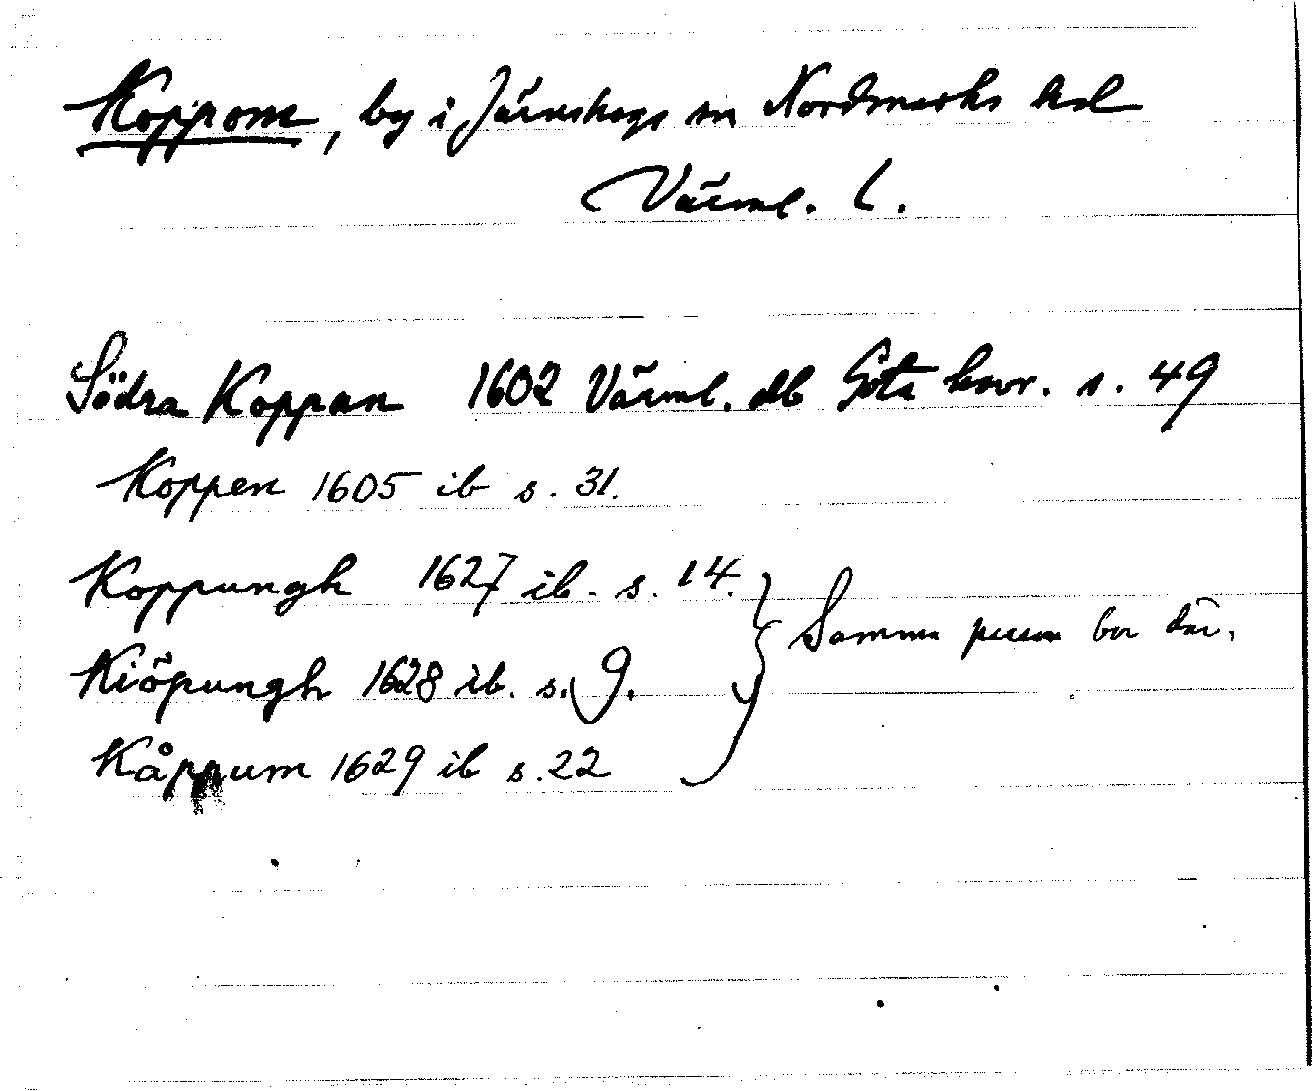 Koppom, by i Järnskogs sn Nordmarks hd
Värml. l.
Södra Koppan 1602 Värml. db Göta hovr. s. 49
Koppen 1605 ib s. 31.
Koppungh 1627 ib. s. 14.
Samma person bor där.
Kiöpungh 1628 ib. s. 9.
Kåppum 1629 ib s. 22